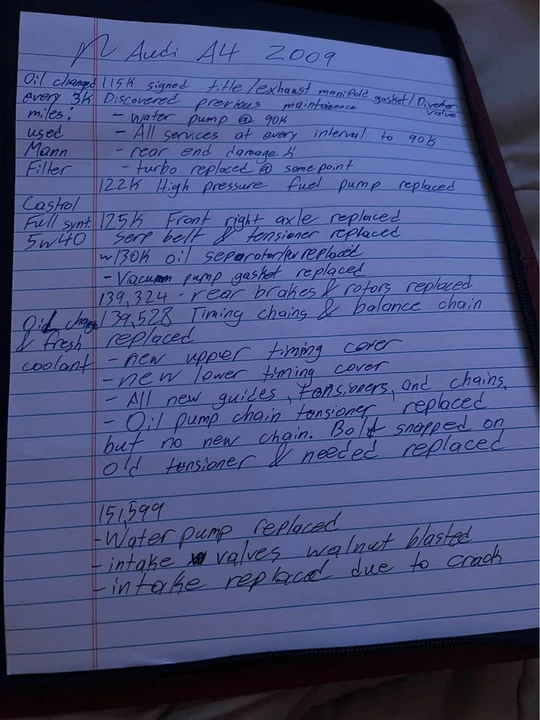 Audi A4 2009
Oil changed 115K signed title/exhaust manifold gasket/Diverter valve
every 3K Discovered previous maintenance
miles: - water pump @ 90K
used - All services at every interval to 90K
Mann - rear end damage
Filter - turbo replaced @ some point
122K High pressure fuel pump replaced
Castrol
Full synt. 125K Front right axle replaced
5w40 Serp belt & tensioner replaced
~130K oil separator replaced
- Vacuum pump gasket replaced
139,324 - rear brakes & rotors replaced
Oil change 139,528 Timing chains & balance chain
& fresh replaced
coolant - new upper timing cover
- new lower timing cover
- All new guides, tensioners, and chains,
- Oil pump chain tensioner replaced
but no new chain. Bolt snapped on
old tensioner & needed replaced
151,599
- Water pump replaced
- intake valves walnut blasted
- intake replaced due to crack